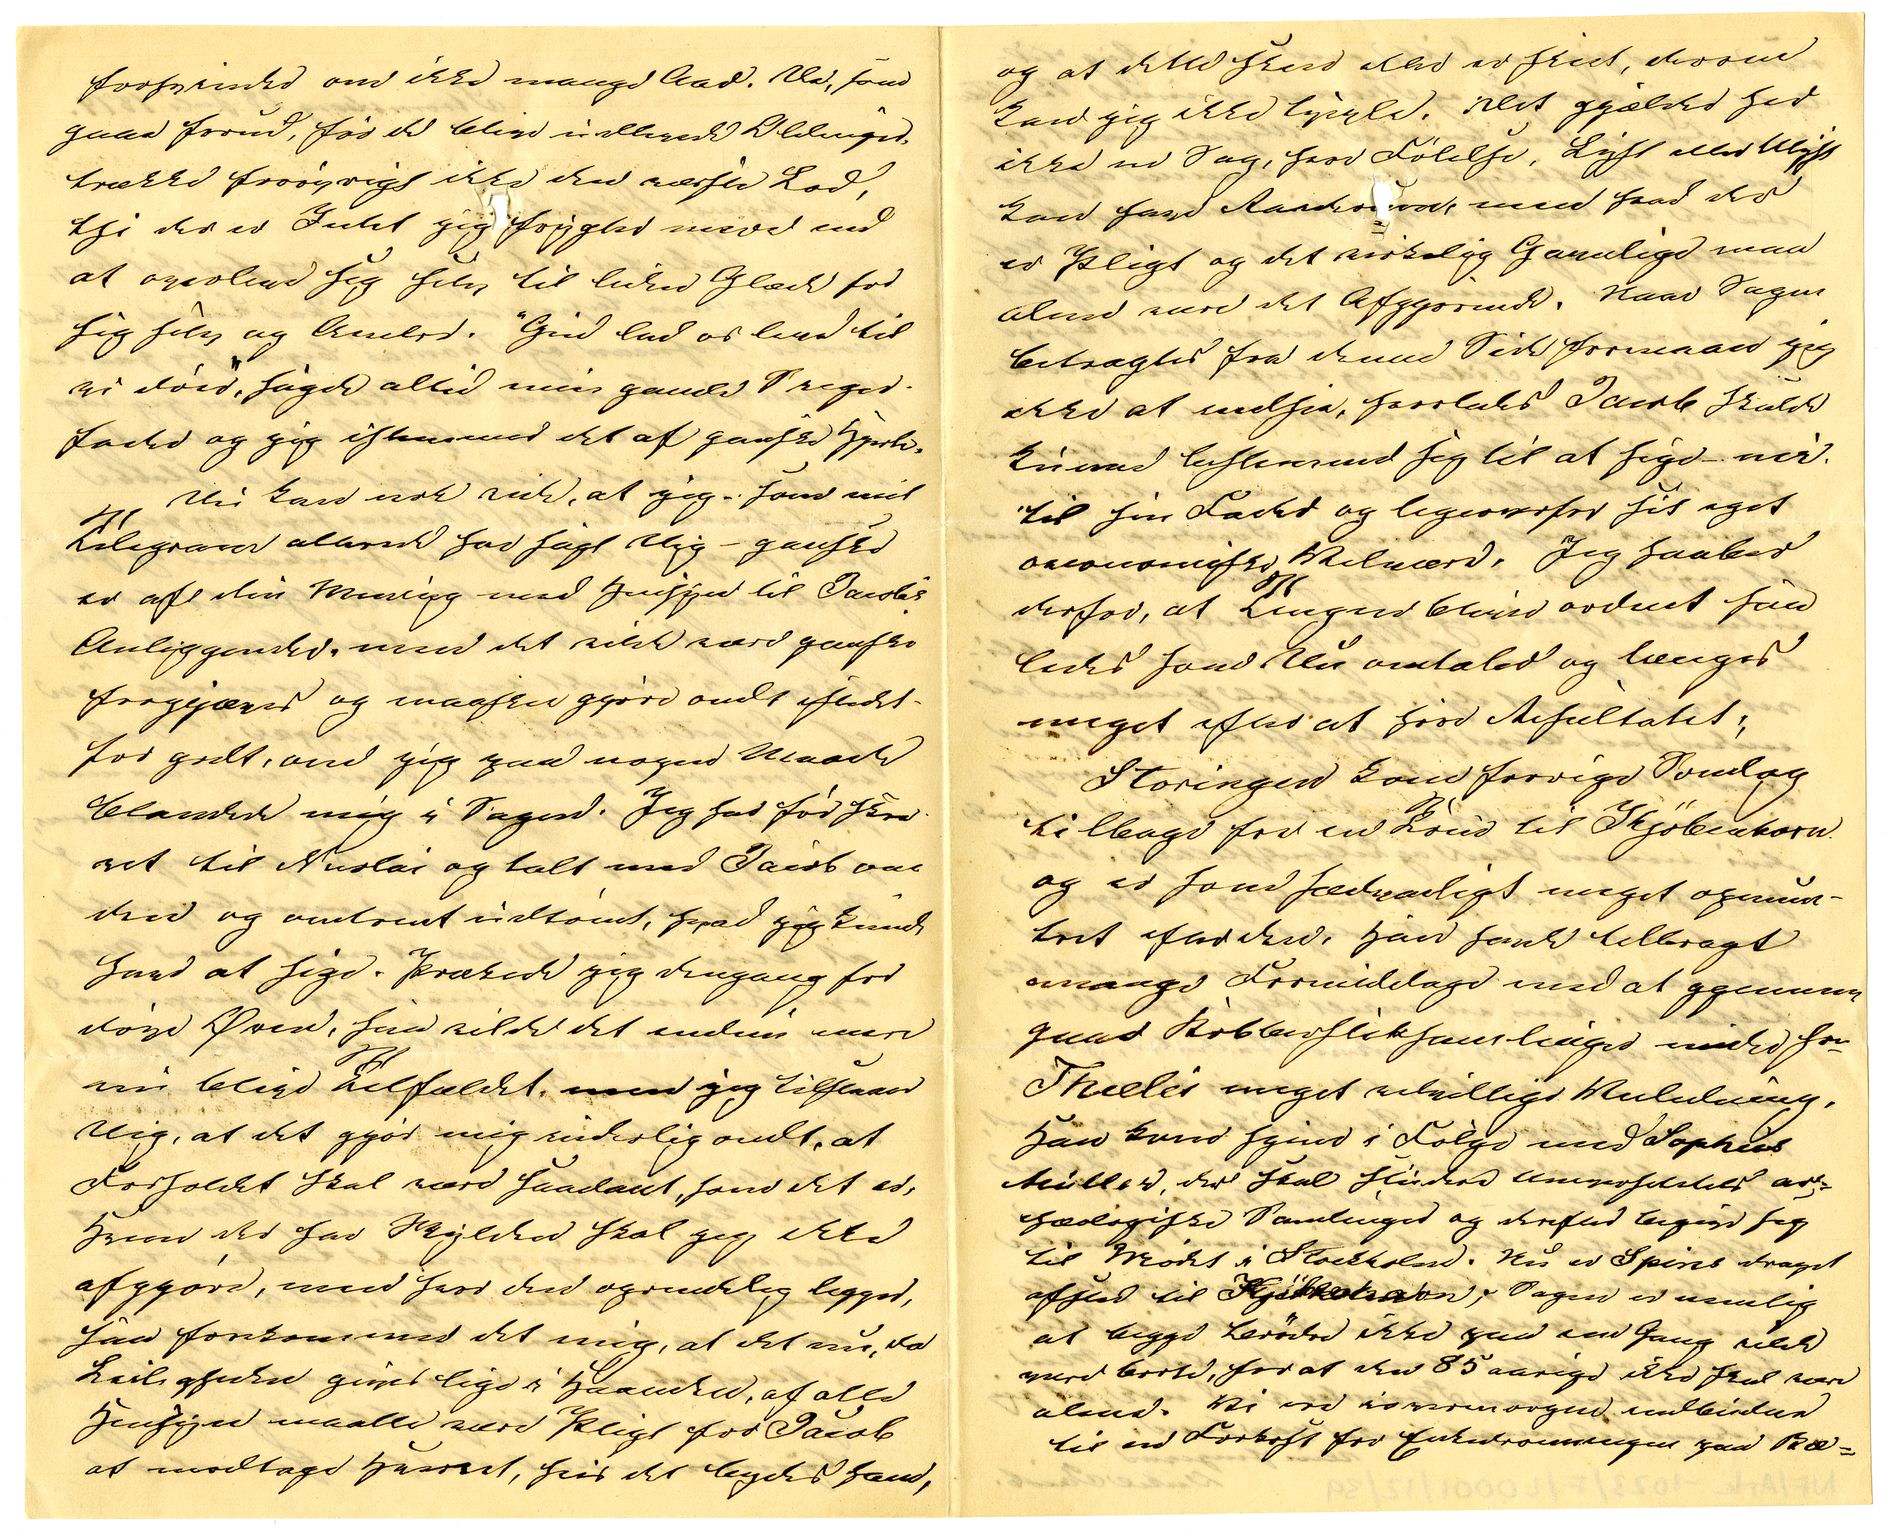 forsvinder om ikke mange Aar. De, som
gaae forud, før de blive udlevede Oldinger,
trække forøvrigt ikke den værste Lod,
thi der er Intet jeg frygter mere end
at overleve sig selv til liden Glæde for
sig selv og Andre. "Gud lad os leve til
vi døer", sagde altid min gamle Svoger-
fader og jeg istemmer det af ganske Hjerte.
Du kan nok vide, at jeg - som mit
Telegram allerede har sagt Dig - ganske
er af din Mening med Hensyn til Jacobs
Anliggender, men det vilde være ganske
forgjæves og maaskee gjøre ondt istedet-
for godt, om jeg paa nogen Maade
blandede mig i Sagen. Jeg har før skre-
vet til Nicolai og talt med Jacob om
den og omtrent udtømt, hvad jeg kunde
have at sige. Prækede jeg dengang for
døve Øren, saa vilde det endnu mere
nu blive Tilfældet, men jeg tilstaaer
Dig, at det gjør mig inderlig ondt, at
Forholdet skal være saadant, som det er.
Hvem der har Skylden skal jeg ikke
afgjøre, men hvor den oprindelig ligger,
saa forekommer det mig, at det nu, da
Leiligheden gives lige i Haanden, af alle
Hensyn maatte være Pligt for Jacob
at modtage Hvervet, hvis det bydes ham,
og at dette skeer eller er skeet, derom
kan jeg ikke tvivle. Det gjælder her
ikke en Sag, hvor Følelse, Lyst eller Ulyst
kan have men hvad der
er Pligt og det virkelig Gavnlige maa
alene være det Afgjørende. Naar Sagen
betragtes fra denne Side formaaer jeg
ikke at indsee, hvorledes Jacob skulde
kunne bestemme sig til at sige - nei.
til sin Fader og ligeoverfor sit eget
oeconomiske Velværd. Jeg haaber
derfor, at Tingen bliver ordnet saa-
ledes som Du omtaler og længes
meget efter at høre Resultatet.
Storingen kom forrige Søndag
tilbage fra en Tour til Kjøbenhavn
og er som sædvanligt meget opmun-
tret efter den. Han havde tilbragt
mange Formiddage med at gjennem-
gaae Kobberstiksamlinger under hr.
Thieles meget velvillige Veiledning.
Han kom hjem i Følge med Sophus
Müller, der skal studere Universitetets ar-
chæologiske Samlinger og derefter begive sig
til Mødet i Stockholm. Nu er draget
afsted til Kjøbenhavn; Sagen er nemlig
at begge Brødre ikke paa een Gang vilde
være borte, for at den 85 aarige ikke skal være
alene. Vi ere iovermorgen indbudne
til en Frokost for Enkedronningen paa